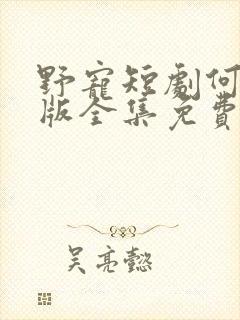 野寵短劇何
版全集免費
吴亮懿